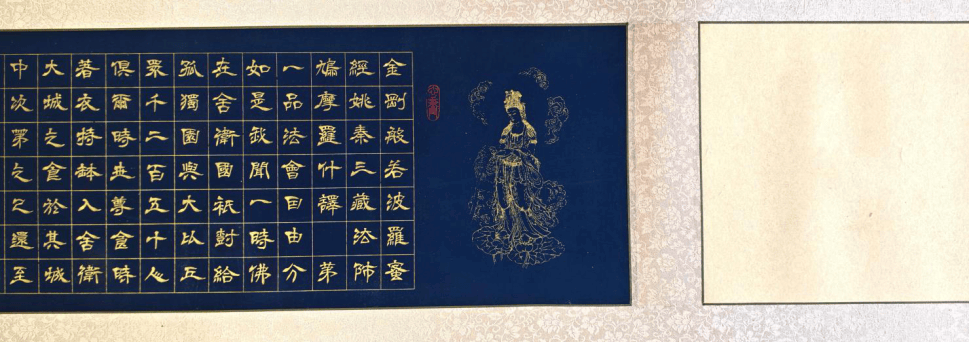 金剛般若波羅蜜
經姚秦三藏法師
鳩摩羅什譯 第
一品法會因由分
如是我聞一時佛
在舍衛國祇樹給
孤獨園與大比丘
眾千二百五十人
俱爾時世尊食時
著衣持鉢入舍衛
大城乞食於其城
中次第乞已還至